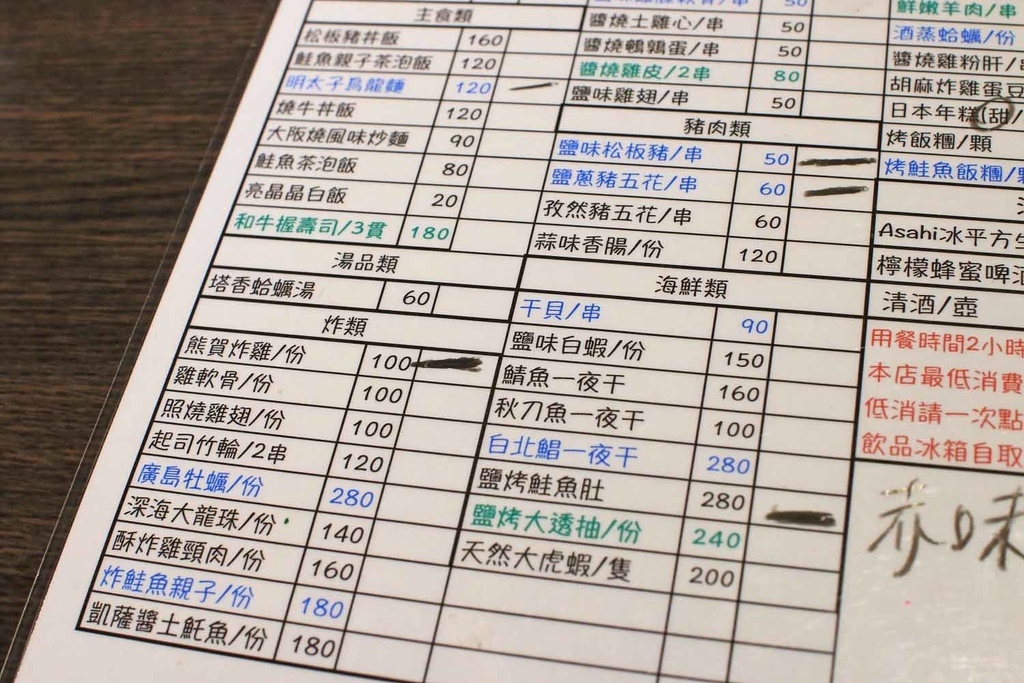 主食類
松板豬丼飯 160
鮭魚親子茶泡飯 120
明太子烏龍麵 120
燒牛丼飯 120
大阪燒風味炒麵 90
鮭魚茶泡飯 80
亮晶晶白飯 20
和牛握壽司/3貫 180
湯品類
塔香蛤蠣湯 60
炸類
熊賀炸雞/份 100
雞軟骨/份 100
照燒雞翅/份 100
起司竹輪/2串 120
廣島牡蠣/份 280
深海大龍珠/份 140
酥炸雞頸肉/份 160
炸鮭魚親子/份 180
凱薩醬土魠魚/份 180
50
醬燒土雞心/串 50
醬燒鵪鶉蛋/串 50
醬燒雞皮/2串 80
鹽味雞翅/串 50
豬肉類
鹽味松板豬/串 50
鹽蔥豬五花/串 60
孜然豬五花/串 60
蒜味香腸/份 120
海鮮類
干貝/串 90
鹽味白蝦/份 150
鯖魚一夜干 160
秋刀魚一夜干 100
白北鯧一夜干 280
鹽烤鮭魚肚 280
鹽烤大透抽/份 240
天然大虎蝦/隻 200
鮮嫩羊肉/串
酒蒸蛤蠣/份
醬燒雞粉肝/串
胡麻炸雞蛋豆
日本年糕(甜/
烤飯糰/顆
烤鮭魚飯糰/顆
Asahi冰平方生
檸檬蜂蜜啤酒
清酒/壺
用餐時間2小時
本店最低消費
低消請一次點
飲品冰箱自取
赤味